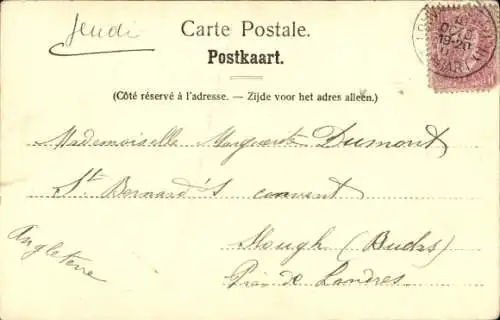 Jeudi
Carte Postale.
Postkaart.
(Côté réservé à l'adresse. — Zijde voor het adres alleen.)
Mademoiselle Marguerite Dumont
St Bernard's convent
Slough (Bucks)
Angleterre
Près de Londres